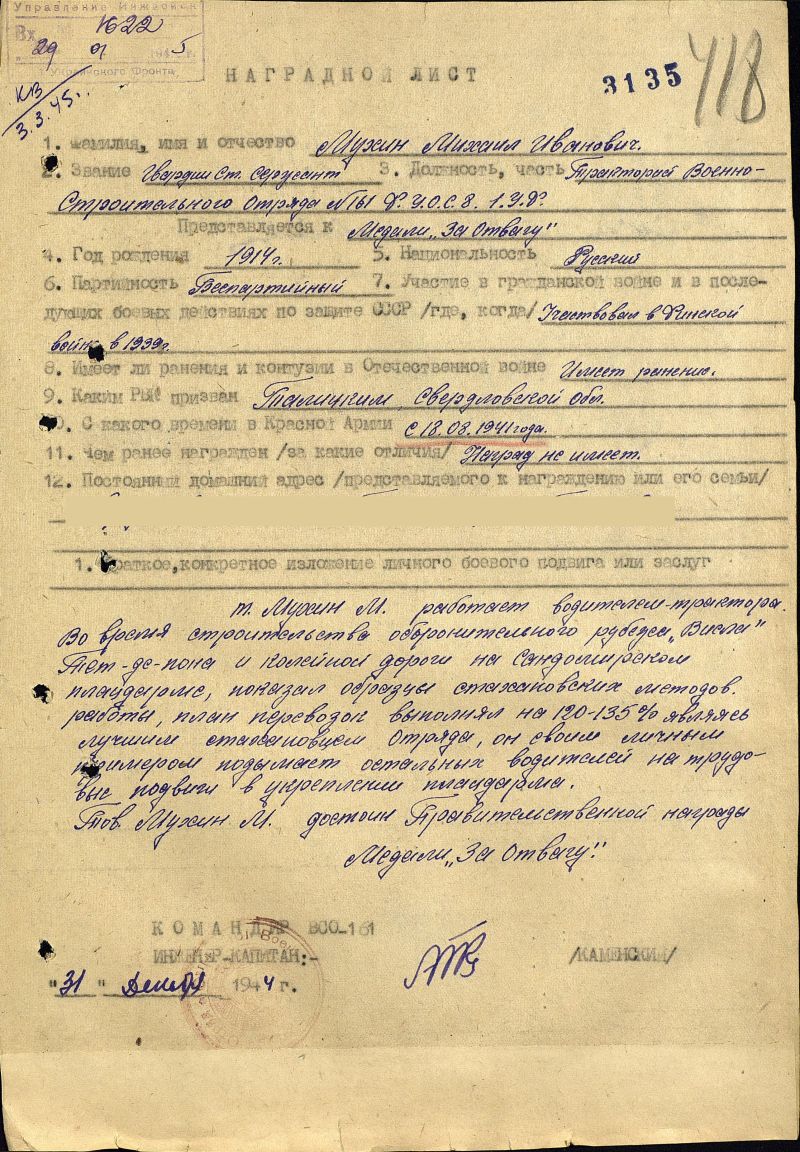 Управление Инжвойск
Вх 1622
"29" 01 1945 г.
Украинского Фронта
КВ
3.3.45г.
НАГРАДНОЙ ЛИСТ
3135
418
1. Фамилия, имя и отчество Мухин Михаил Иванович.
2. Звание Гвардии Ст. Сержант 3. Должность, часть Тракторист Военно-
Строительного отряда №161 У.О.С. 8. 1.У.Ф.
Представляется к Медали „За Отвагу"
4. Год рождения 1914г. 5. Национальность Русский
6. Партийность Беспартийный 7. Участие в гражданской войне и в после-
дующих боевых действиях по защите СССР /где, когда/ Участвовал в Финской
войне в 1939г.
8. Имеет ли ранения и контузии в Отечественной войне Имеет ранение.
9. Каким РВК призван Талицким, Свердловской обл.
10. С какого времени в Красной Армии с 18.08.1941 года.
11. Чем ранее награжден /за какие отличия/ Наград не имеет.
12. Постоянный домашний адрес /представляемого к награждению или его семьи/
1. Краткое, конкретное изложение личного боевого подвига или заслуг
т. Мухин М. работает водителем-трактора.
Во время строительства оборонительного рубежа „Висла"
Тет-де-пона и колейной дороги на Сандомирском
плацдарме, показал образцы стахановских методов
работы, план перевозок выполнял на 120-135% являясь
лучшим стахановцем Отряда, он своим личным
примером подымает остальных водителей на трудо-
вые подвиги в укреплении плацдарма.
Тов. Мухин М. достоин Правительственной награды
Медали „За Отвагу".
КОМАНДИР ВСО-161
ИНЖЕНЕР-КАПИТАН:- /КАМЕНСКИЙ/
"31" Декабря 1944 г.